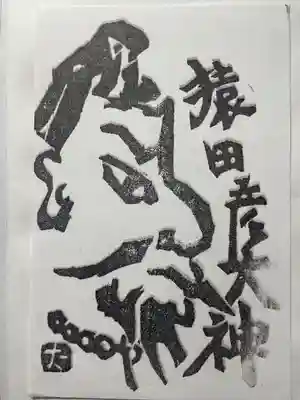 猿田彦大神
大